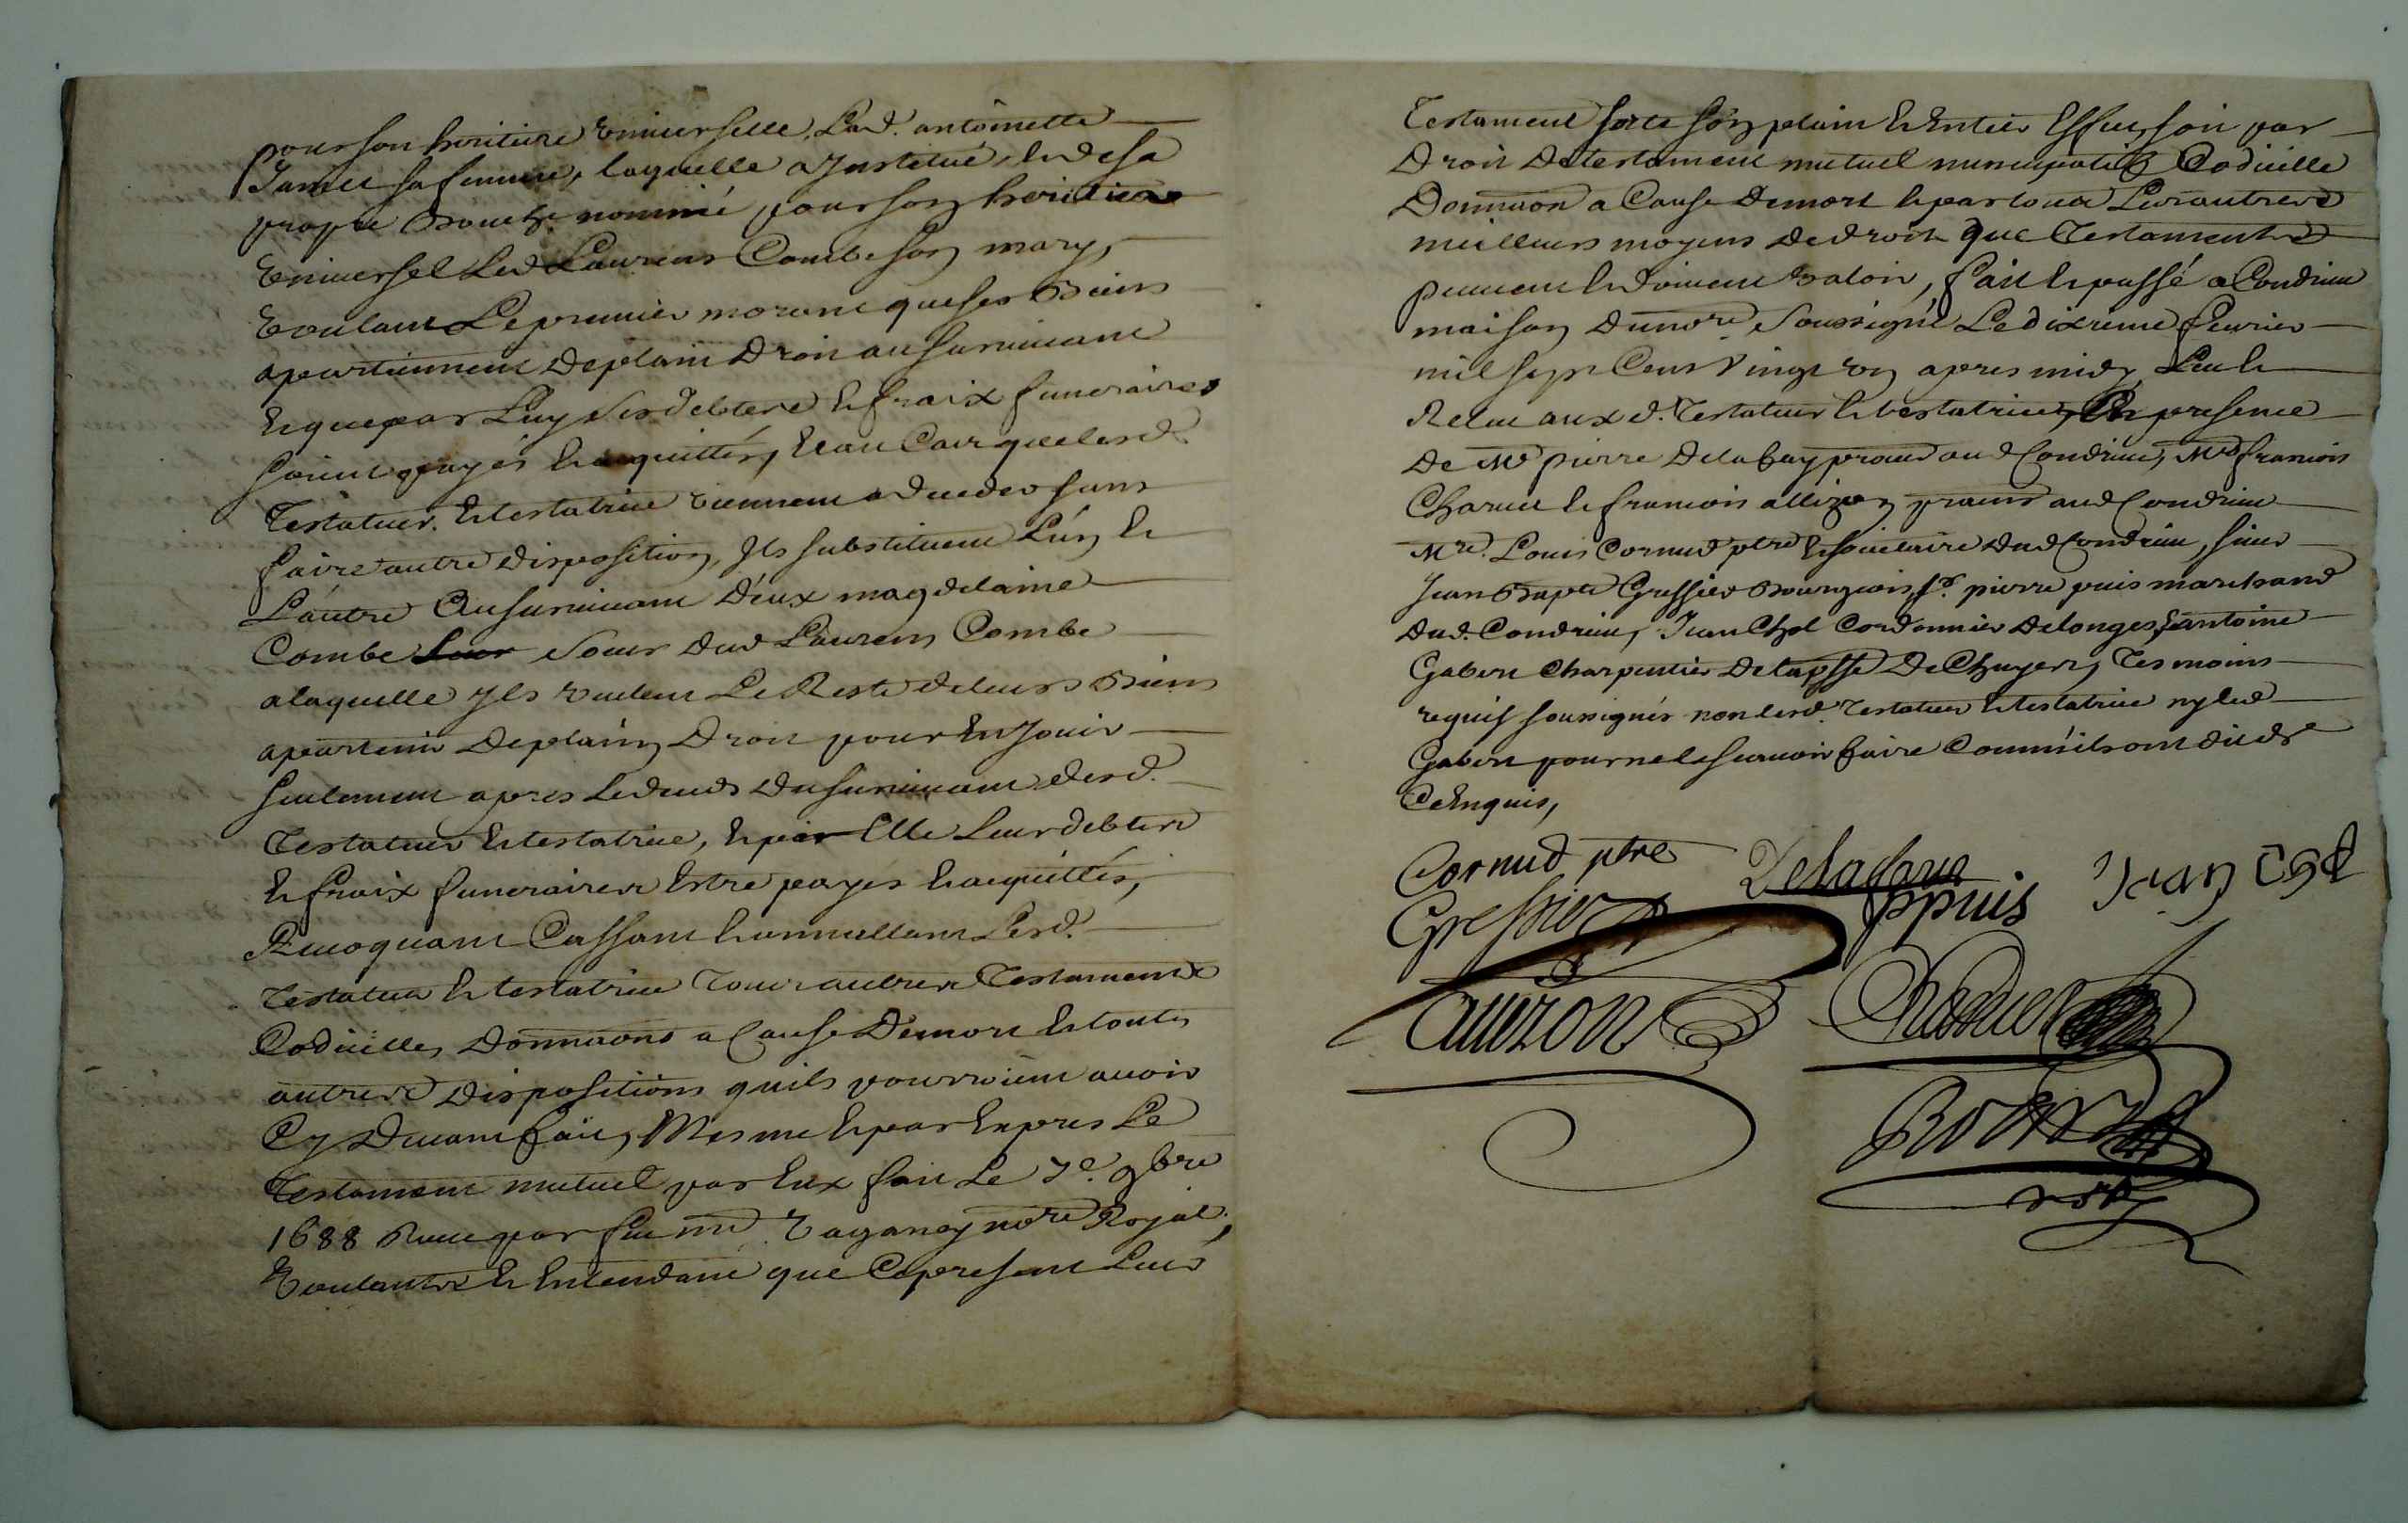 pour son heritiere Vniuerselle, Lad. antoinette
Jamet sa femme, laquelle a Jnstitué, et de sa
propre Bouche nommé pour son heritier
Vniuersel Led Laurens Combe son mary,
Voulant Le premier mourant que ses Biens
apartiennent de plain Droit au suruiuant
Et que par Luy ses debtes et fraix funeraires
soient payés et acquittés, Et au Cas que lesd.
Testateur Et testatrice viennent a deceder sans
faire autre disposition, Jls substituent L'un et
L'autre Au suruiuant d'eux magdelaine
Combe sœur dud Laurens Combe
a laquelle Jls veulent Le Reste de leurs Biens
apartenir de plain Droit pour En Jouir
seulement apres Le deceds du suruiuant desd.
Testateur Et testatrice, Et par Elle Leur debtes
Et fraix funeraires Estre payés Et acquittés,
Reuoquant Cassant Et annullant Lesd.
Testateur Et testatrice Tous autres Testaments
Codicilles, Donnaons a Cause De mort Et toutes
autres dispositions quils pourroient auoir
Cy Deuant fait, Mesme Et par Expres Le
Testament mutuel par Eux fait Le 7e. 9bre
1688 Receu par feu me. Vaganey nore Royal,
Voulants Et Entendant que Ce present Leur
Testament sorte son plain Et Entier Effect, soit par
Droit De testament mutuel nuncupatif Codicille
Donnaon a Cause De mort Et par tous Les autres
meilleurs moyens de droit que Testaments
peuuent Et doiuent valoir, fait Et passé a Condrieu
maison du nore soussigné Le dixieme feurier
mil sept Cent Vingt vn apres midy, Leu Et
Releu aux d. Testateur Et testatrice, En presence
De Me pierre Delafay praticien aud Condrieu, Mre francois
Et francois allizon praticiens aud Condrieu
Mre. Louis Cornud ptre Et societaire dud Condrieu, sieur
Jean Bapte Gressier Bourgeois, sr. pierre puis marchand
dud. Condrieu, Jean Chol Cordonnier de longes, Et antoine
Gabert Charpentier de la psse De Chuyer, Tesmoins
requis soussignés non lesd. Testateur Et testatrice ny led
Gabert pour ne le scauoir faire Comm'ils ont dit de
Ce Enquis,
Cornud ptre
Jean Chol
Gressier
ppuis
allizon